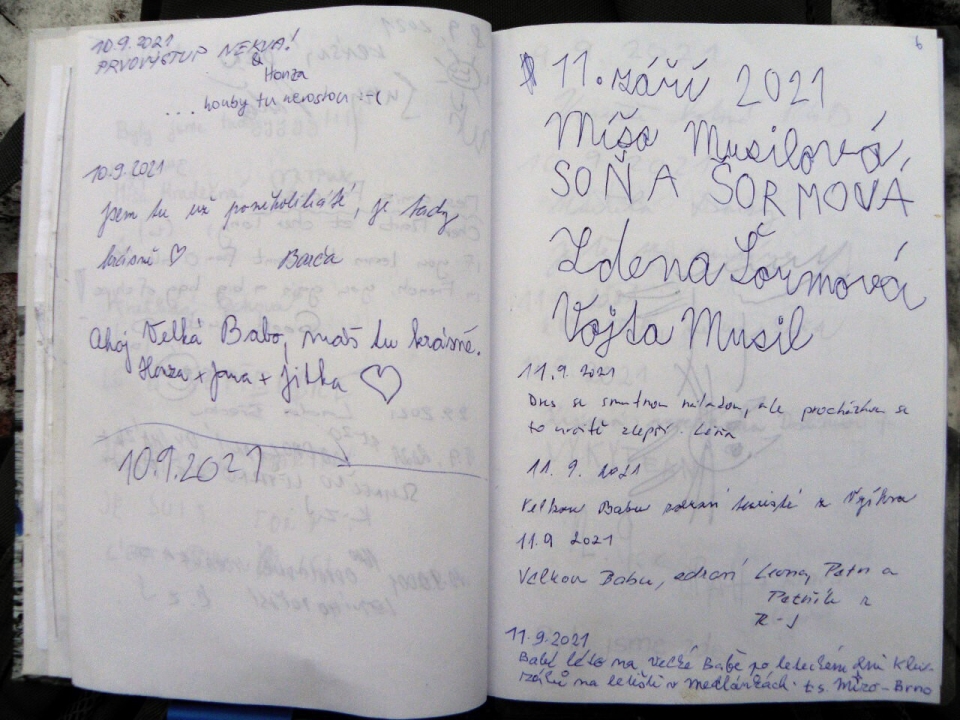 10.9.2021
PRVOVÝSTUP NEKVA!
& Honza
... houby tu nerostou :-(
10.9.2021
Jsem tu už poněkolikáté, je tady
krásně ♡ Barča
Ahoj Velká Babo, máš tu krásně.
Honza + Jana + Jitka ♡
10.9.2021
6
11. září 2021
Míša Musilová,
SOŇA ŠORMOVÁ
Zdena Šormová
Vojta Musil
11.9 2021
Dnes se smutnou náladou, ale procházkou se
to určitě zlepší.
11. 9. 2021
Velkou Babu zdraví turisté z
11.9 2021
Velkou Babu, zdraví Petr a
Petřík z
R-J
11.9.2021
Babí léto na Velké Babě po leteckém dni
na letišti v Medlánkách. t.s. Mízo-Brno